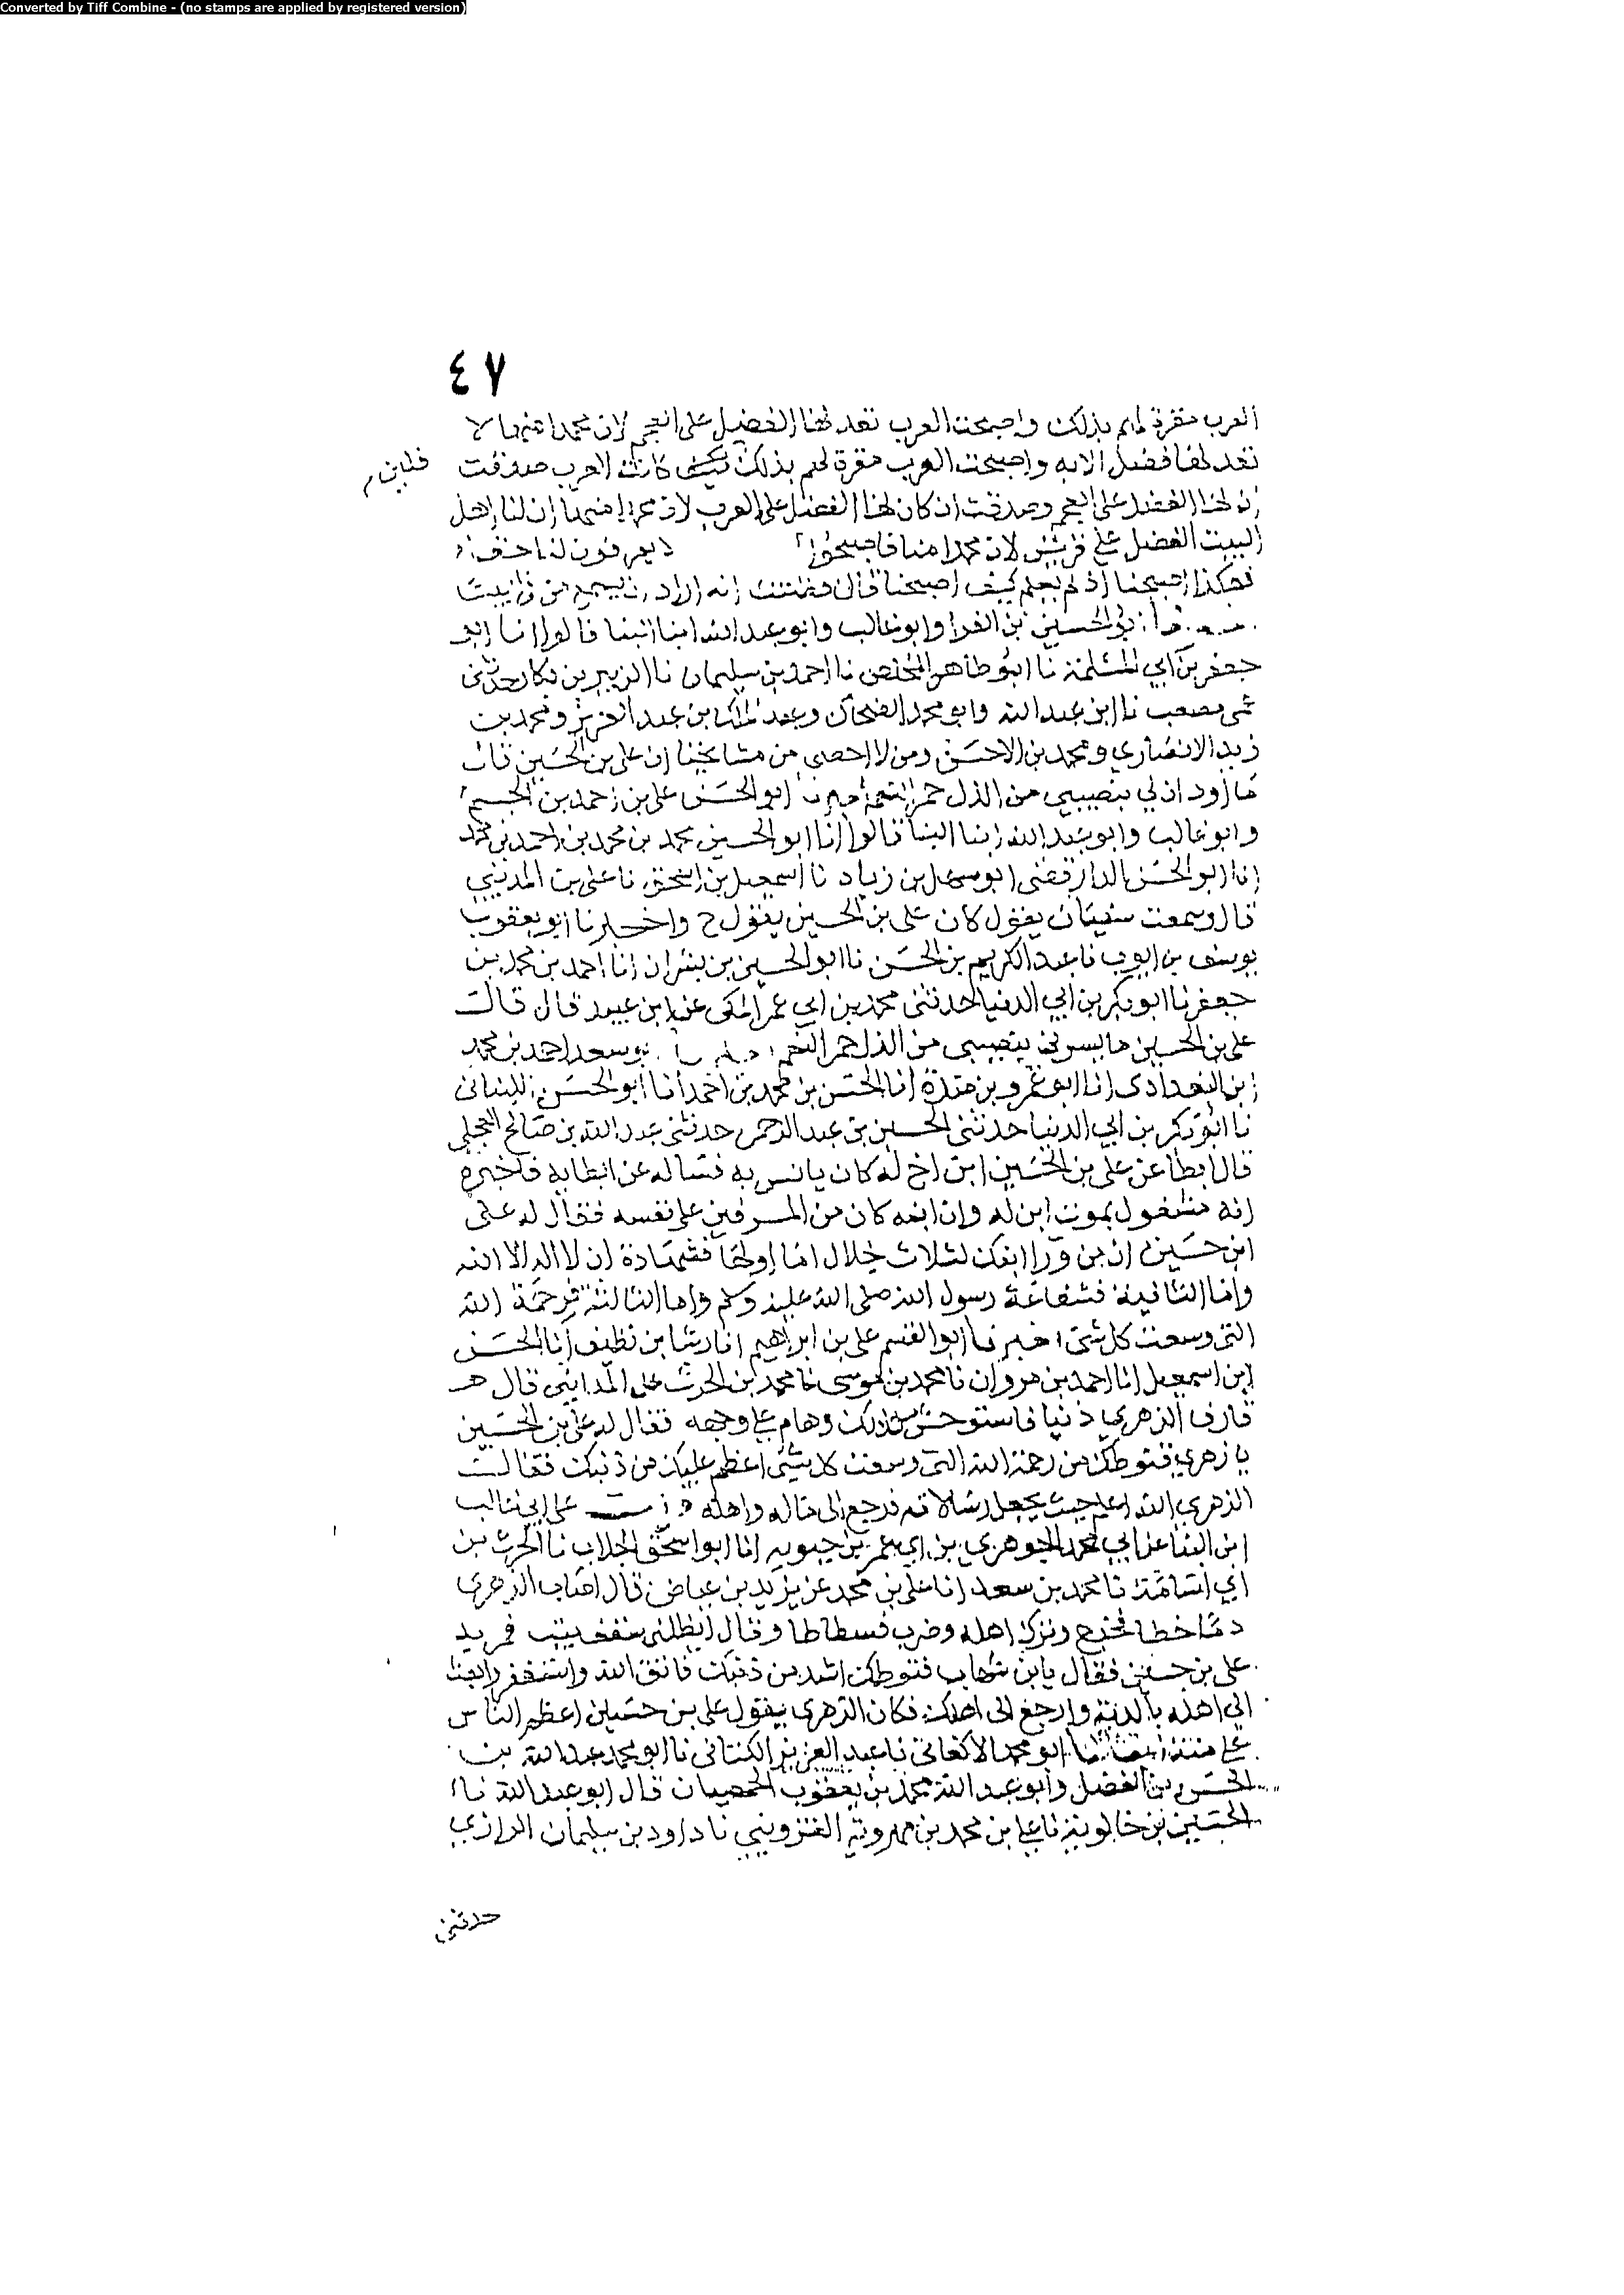 Converted by Tiff Combine - (no stamps are applied by registered version)
٤٧
العرب مقرة لهم بذلك واصبحت العرب تعد لها الفضل على العجم لان محمدا منها لا
تعد لها فضل الا به واصبحت العجم مقرة لهم بذلك كانت العرب صدقت
فلين م
ان لها الفضل على العجم وصدقت ان كان لها الفضل على العرب لان محمدا منها ان لنا اهل
البيت الفضل على قريش لان محمدا منا فاصبحوا لا يعرفون لنا حقا
فهكذا اصبحنا اذ لم يعلم كيف اصبحنا قال فظننت انه اراد ان يسمع من في البيت
ابو الحسين بن الفرا وابو غالب وابو عبد الله ابنا البنا قالوا انا ابو
جعفر بن ابي المسلمة نا ابو طاهر المخلص نا احمد بن سليمان نا الزبير بن بكار حدثني
عمي مصعب نا ابن عبد الله وابو محمد الضحاك وعبد الملك بن عبد العزيز ومحمد بن
زيد الانصاري ومحمد بن ومن لا احصي من مشايخنا ان علي بن الحسين قال
ما اود ان لي بنصيبي من الذل حمر النعم ابو الحسن علي بن احمد بن الحسن
وابو غالب وابو عبد الله ابنا البنا قالوا انا ابو الحسين محمد بن محمد بن احمد بن محمد
انا ابو الحسن الدارقطني ابو سهل بن زياد نا اسمعيل بن اسحق نا علي بن المديني
قال وسمعت سفيان يقول كان علي بن الحسين يقول ح واخبرنا ابو يعقوب
يوسف بن ايوب نا عبد الكريم بن الحسن نا ابو الحسين بن بشران انا احمد بن محمد بن
جعفر نا ابو بكر بن ابي الدنيا حدثني محمد بن ابي عمر المكي عن ابن عبيد قال قال
علي بن الحسين ما يسرني بنصيبي من الذل حمر النعم ابو سعد احمد بن محمد
ابن البغدادي انا ابو عمرو بن مندة انا الحسن بن محمد بن احمد انا ابو الحسن اللبناني
نا ابو بكر بن ابي الدنيا حدثني الحسين بن عبد الرحمن حدثني عبد الله بن صالح العجلي
قال ابطا عن علي بن الحسين ابن اخ له كان يانس به فساله عن ابطايه فاخبره
انه مشغول بموت ابن له وان ابنه كان من المسرفين على نفسه فقال له علي
ابن حسين ان من ورا ابنك لثلاث خلال اما اولها فشهادة ان لا اله الا الله
واما الثانية فشفاعة رسول الله صلى الله عليه وسلم واما الثالثة فرحمة الله
التي وسعت كل شئ اخبرنا ابو القسم علي بن ابراهيم انا رشا بن نظيف انا الحسن
ابن اسمعيل انا احمد بن مروان نا محمد بن موسى نا محمد بن الحرث على المدايني قال
قارف الزهري ذنبا فاستوحش من ذلك وهام على وجهه فقال له علي بن الحسين
يا زهري قنوطك من رحمة الله التي وسعت كل شئ اعظم عليك من ذنبك فقال
الزهري الله اعلم حيث يجعل رسالاته فرجع الى ماله واهله على ابي غالب
ابن البنا عن ابي محمد الجوهري بن ابي عمر بن حيويه انا ابو اسحق الجلاب نا الحرث بن
ابي اسامة نا محمد بن سعد انا علي بن محمد عن يزيد بن عياض قال اصاب الزهري
دما خطا فخرج وترك اهله وضرب فسطاطا وقال لا يظلني سقف بيت فمر به
علي بن حسين فقال يا بن شهاب قنوطك اشد من ذنبك فاتق الله واستغفر وابعث
الى اهله بالدية وارجع الى اهلك فكان الزهري يقول علي بن حسين اعظم الناس
علي منة ابو محمد الاكفاني نا عبد العزيز الكتاني نا ابو محمد عبد الله بن
الحسن بن الفضل وابو عبد الله محمد بن يعقوب الحمصيان قال ابو عبد الله نا
الحسين بن خالويه نا علي بن محمد بن مهرويه القزويني نا داود بن سليمان الرازي
حدثني